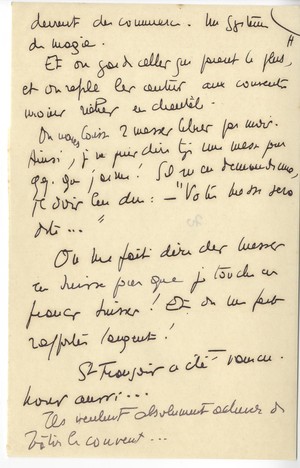 devient du commerce. Un système
de magie.
Et on garde celles qui paient le plus,
et on refile les autres aux couvents
moins riches en clientèle.
On nous laisse 2 messes libres par mois.
Ainsi, je ne puis dire une messe pour
qq. qu j'aime! S'il m'en demandait une,
je dois leur dire: — "Votre messe sera
dite..."
On me fait dire des messes
en Suisse pour que je touche en
francs suisses! Et on me fait
rapporter l'argent!
St François a été vaincu.
nous aussi...
Ils veulent absolument achever de
bâtir le couvent...